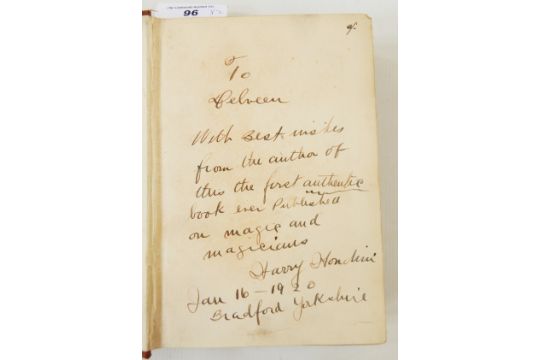 96
To
Delveen
With Best wishes
from the author of
thus the first authentic
book ever Published
on magic and
magicians
Harry Houdini
Jan 16 - 1920
Bradford Yorkshire